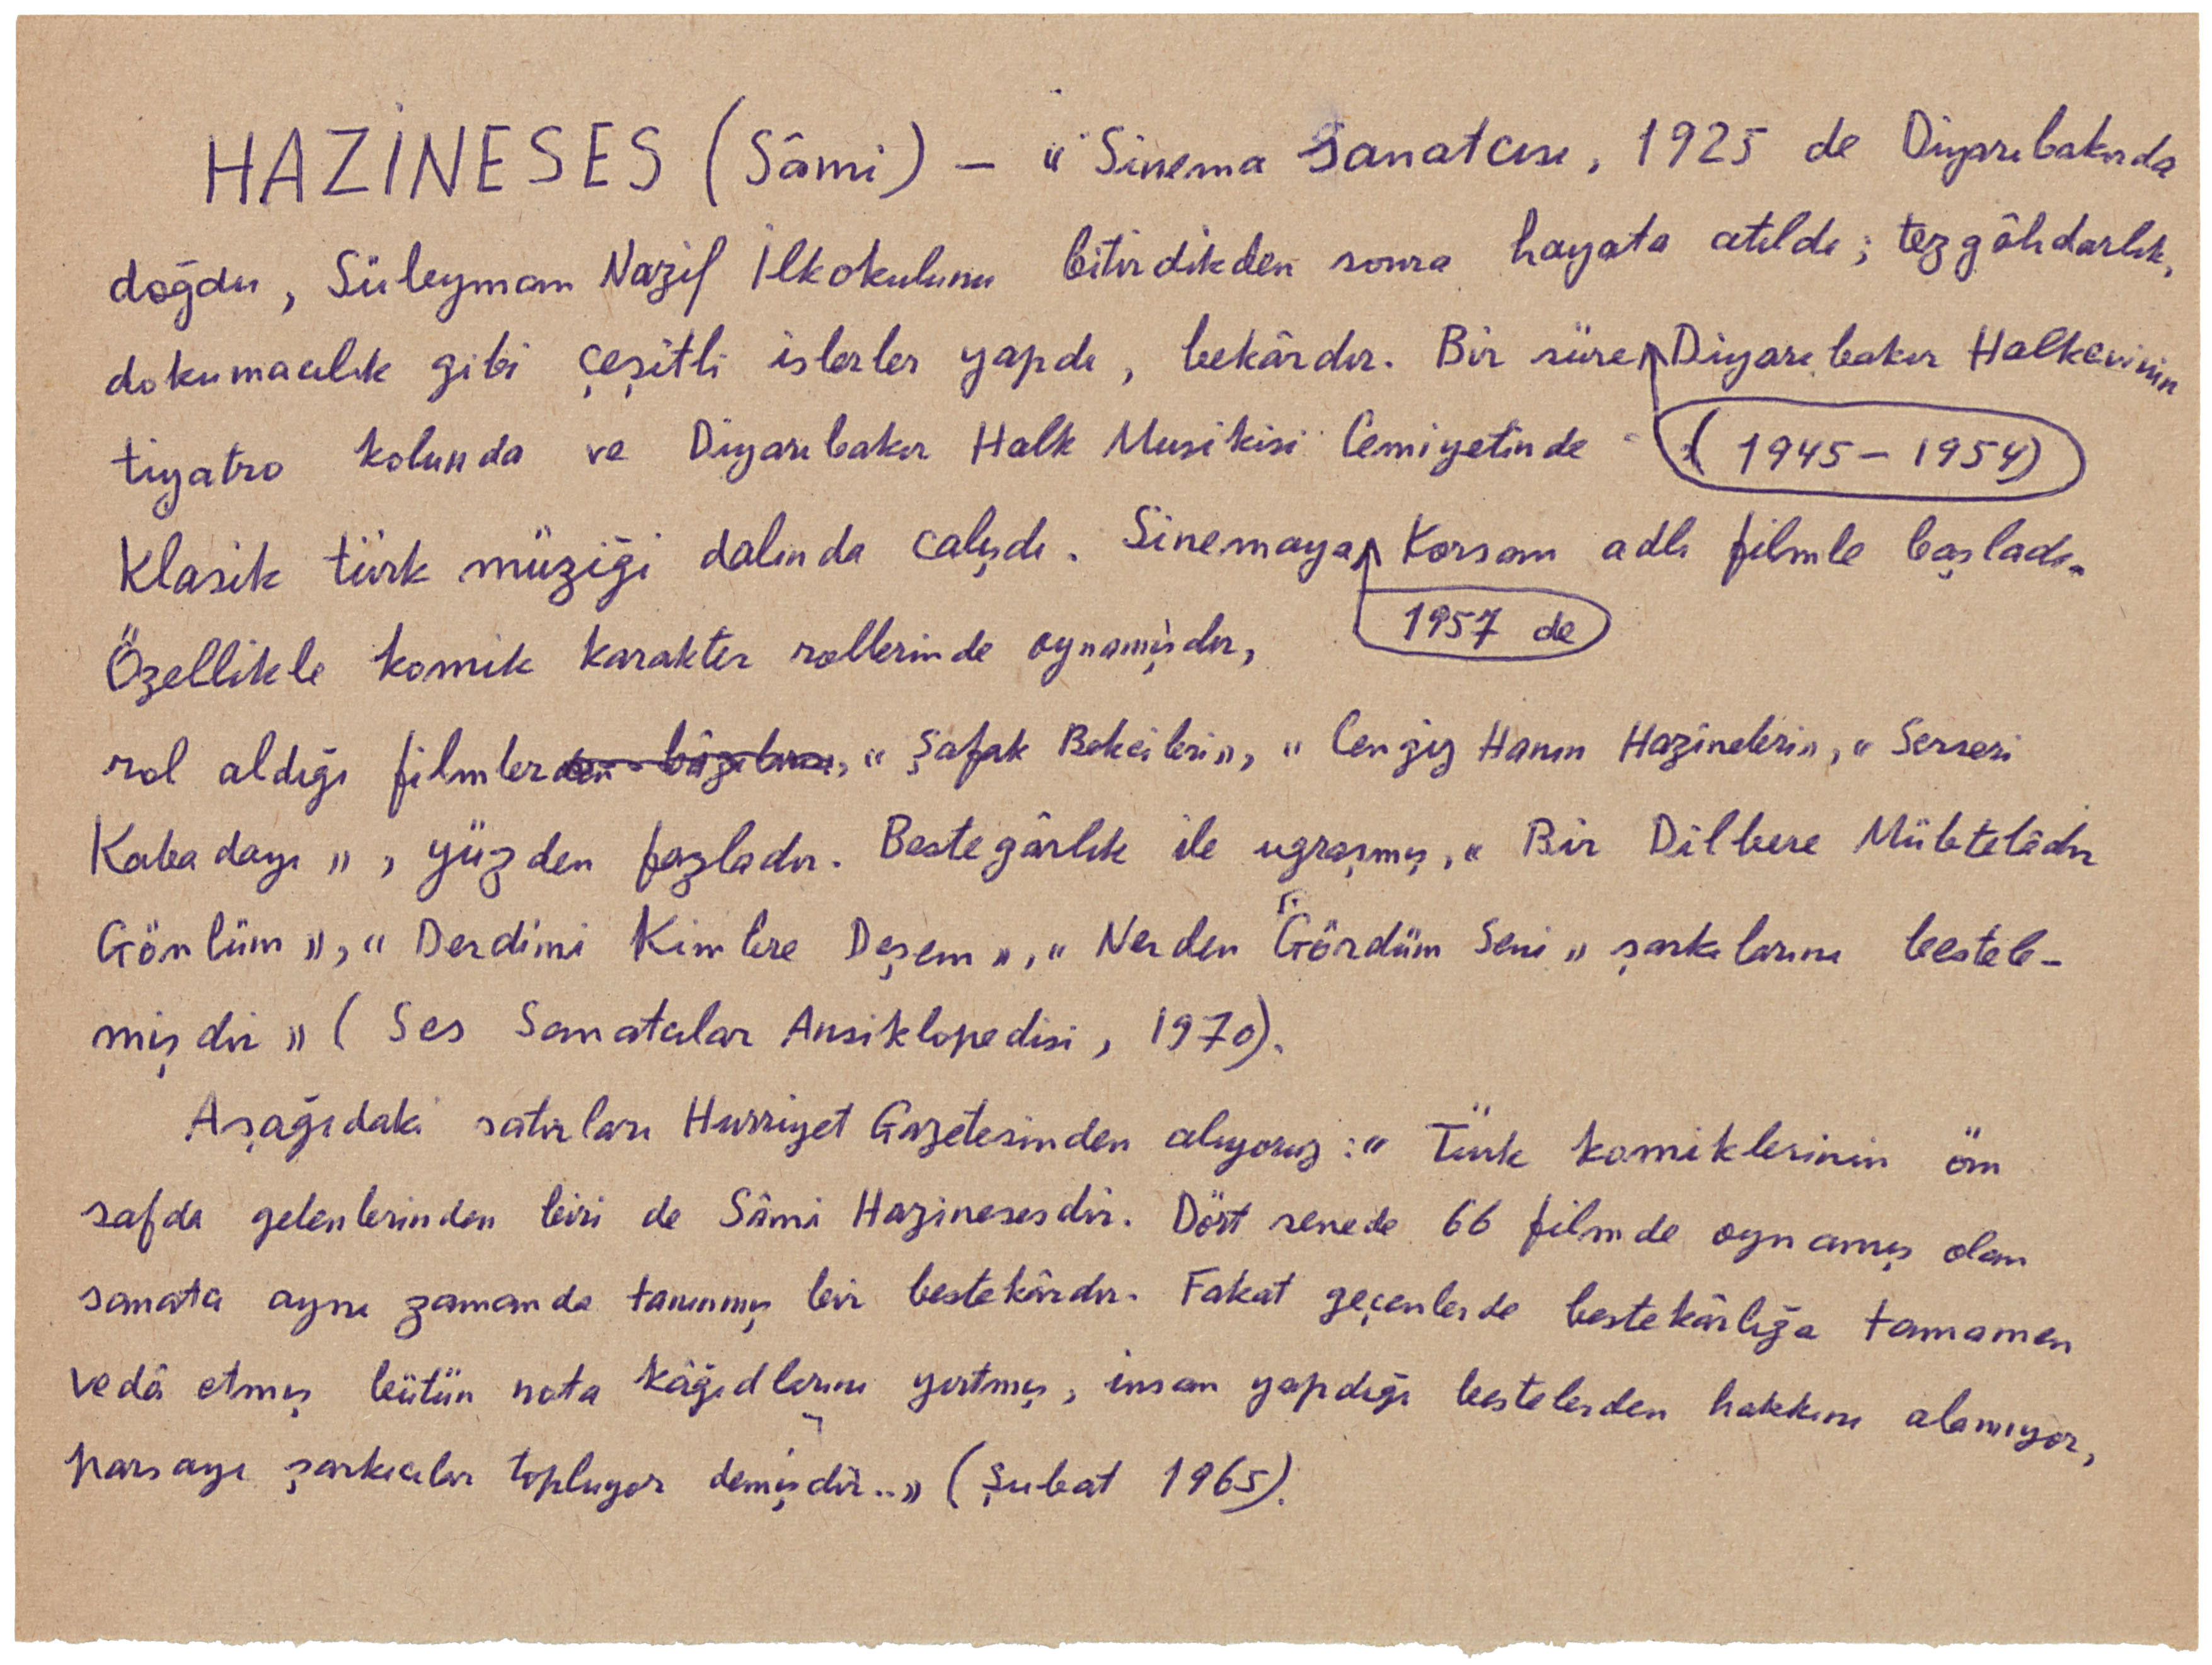 HAZİNESES (Sâmi) — « Sinema Sanatcısı, 1925 de Diyarıbakırda
doğdu, Süleyman Nazif İlkokulunu bitirdikden sonra hayata atıldı; tezgâhdarlık,
dokumacılık gibi çeşitli işlerler yapdı, bekârdır. Bir süre Diyarıbakır Halkevinin
tiyatro kolunda ve Diyarıbakır Halk Musikisi Cemiyetinde (1945 – 1954)
Klasik türk müziği dalında calışdı. Sinemaya Korsan adlı filmle başladı.
Özellikle komik karakter rollerinde oynamışdır, 1957 de
rol aldığı filmler, « Şafak Bekcileri», « Cengiz Hanın Hazineleri», « Serseri
Kabadayı », yüzden fazladır. Bestegârlık ile ugraşmış, « Bir Dilbere Mübtelâdır
Gönlüm », « Derdimi Kimlere Deşem », « Nerden Gördüm Seni » şarkılarını bestele-
mişdir » ( Ses Sanatcılar Ansiklopedisi, 1970).
Aşağıdaki satırları Hurriyet Gazetesinden alıyoruz : « Türk komiklerinin ön
safda gelenlerinden biri de Sâmi Hazinesesdir. Dört senede 66 filmde oynamış olan
sanata aynı zamanda tanınmış bir bestekârdır. Fakat geçenlerde bestekârlığa tamamen
vedâ etmiş bütün nota kâğıdlarını yırtmış, insan yapdığı bestelerden hakkını alamıyor,
parsayı şarkıcılar topluyor demişdir..» (Şubat 1965).